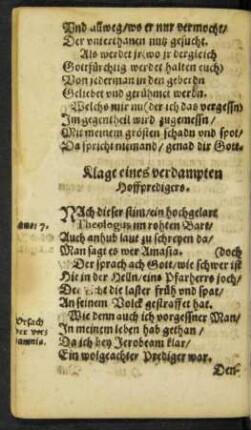 Und allweg/ wo er nur vermocht/
Der unterthanen nutz gesucht.
Als werdet jr/ wo jr derglich
Gottfürchtig werdet halten euch)
Von jederman in den geberdn
Geliebet vnd gerühmet werdn.
Welchs mir nu (der ich das vergessn
Im gegentheil wird zugemessn/
Mit meinem grösten schadn und spot/
Da spricht niemand/ genad dir Gott.
Klage eines verdampten
Hoffpredigers.
NAch dieser stim/ ein hochgelart
Theologus im rohten Bart/
Auch anhub laut zu schreyen da/
Man sagt es wer Amasia. (doch
Der sprach ach Gott/ wie schwer ist
Hie in der Helln/ eins Pfarherrs joch/
die laster früh vnd spat/
An seinem Volck gestraffet hat.
Wie denn auch ich vorgessner Man/
In meinem leben hab gethan/
Da ich bey Jerobeam klar/
Ein wolgeachter Prediger war.
Den-
7.
Vrsach